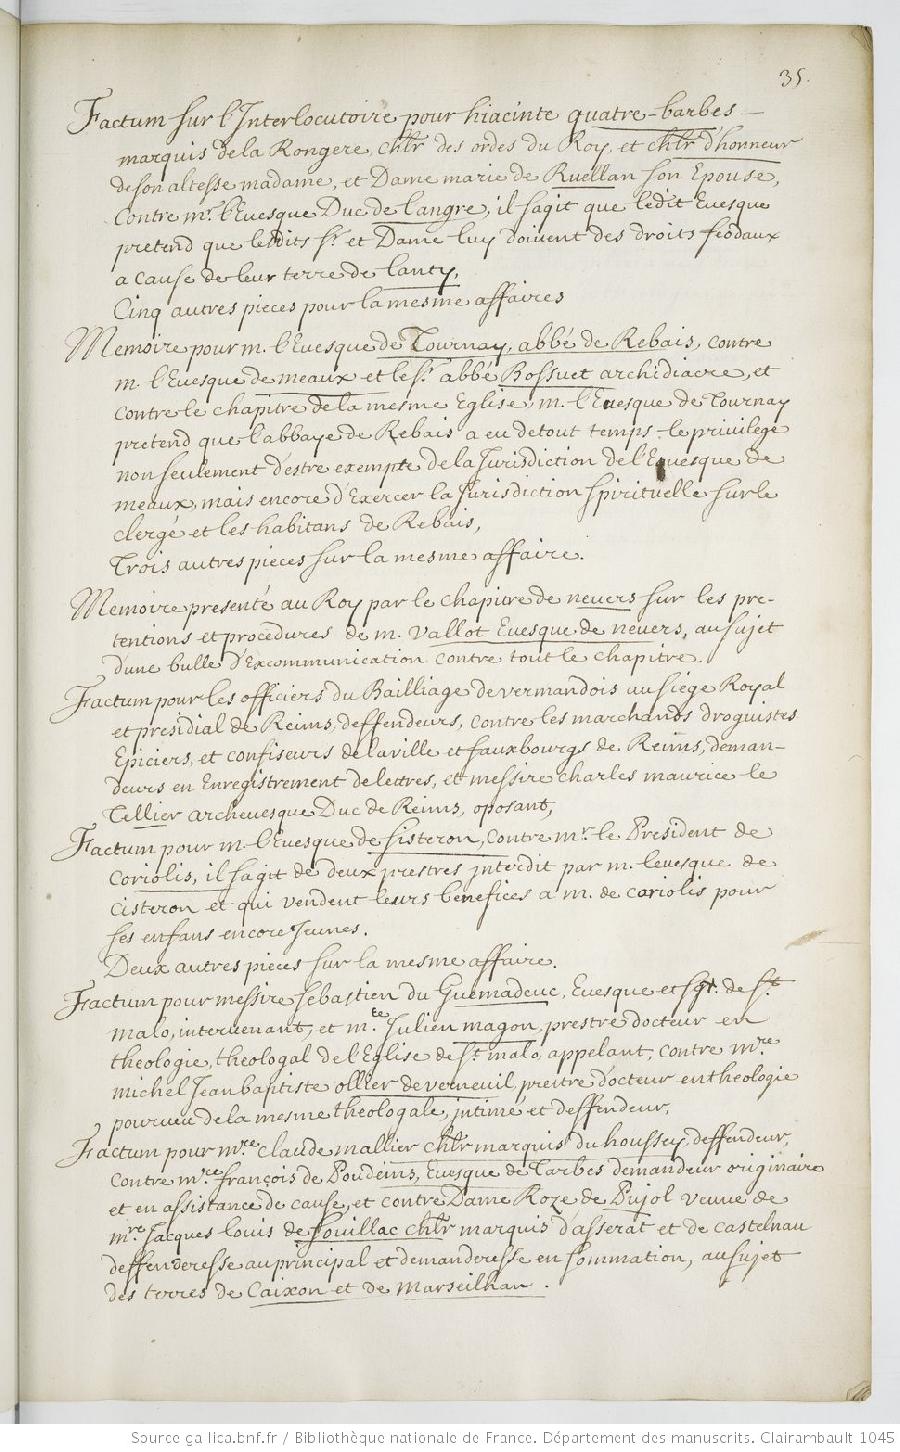 35.
Factum sur l'Interlocutoire pour hiacinte quatre-barbes
marquis de la Rongere, chlr des ordes du Roy, et chlr d'honneur
de son altesse madame, et Dame marie de Ruellan son Epouse,
Contre mr. l'Euesque Duc de langre, il sagit que ledit Euesque
pretend que lesdits sr. et Dame luy doiuent des droits feodaux
a cause de leur terre de lanty,
Cinq autres pieces pour la mesme affaires
Memoire pour m. l'Euesque de Tournay, abbé de Rebais, contre
m. l'Euesque de meaux et le sr. abbé Bossuet archidiacre, et
contre le chapitre de la mesme Eglise, m. l'Euesque de Tournay
pretend que l'abbaye de Rebais a eu de tout temps le priuilege
non seulement d'estre exempte de la Jurisdiction de l'Euesque de
meaux, mais encore d'Exercer la Jurisdiction spirituelle sur le
clergé et les habitans de Rebais,
Trois autres pieces sur la mesme affaire.
Memoire presenté au Roy par le chapitre de neuers sur les pre-
tentions et procedures de m. Vallot Euesque de neuers, au sujet
d'une bulle d'Excommunication contre tout le chapitre.
Factum pour les officiers du Bailliage de vermandois au siége Royal
et presidial de Reims, deffendeurs, contre les marchands droguistes
Epiciers, et confiseurs de la ville et fauxbourgs de Reims, deman-
deurs en Enregistrement de lettres, et messire charles maurice le
Tellier archeuesque Duc de Reims, oposant,
Factum pour m. l'Euesque de sisteron, contre mr. le President de
Coriolis, il sagit de deux prestres interdit par m. leuesque de
cisteron et qui vendent leurs benefices a m. de coriolis pour
ses enfans encore Jeunes.
Deux autres pieces sur la mesme affaire.
Factum pour messire sebastien du Guemadeuc, Euesque et sgr. de st
malo, interuenant, et mte. Julien magon, prestre docteur en
theologie, theologal de l'Eglise de st. malo, appelant, contre mre.
michel Jean baptiste ollier de verneuil, preitre d'octeur en theologie
pourueu de la mesme theologale, intimé et deffendeur,
Factum pour mre. claude mallier chlr marquis du houssey, deffendeur,
contre mre. françois de Poudeins, Euesque de Tarbes demandeur originaire
et en assistance de cause, et contre Dame Roze de Pujol veuue de
mre. Jacques louis de souillac chlr marquis d'asserat et de castelnau
deffenderesse au principal et demanderesse en sommation, au sujet
des terres de Caixon et de marseilhan.
Source gallica.bnf.fr / Bibliothèque nationale de France. Département des manuscrits. Clairambault 1045